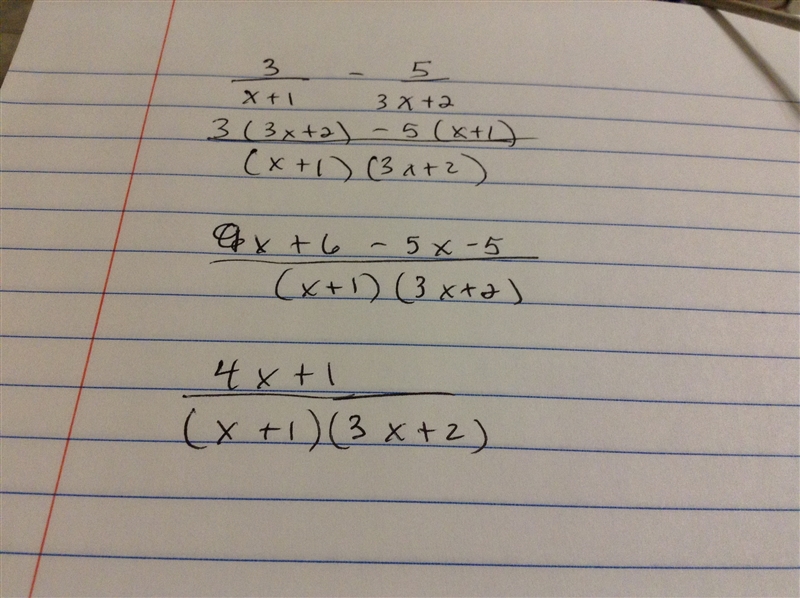 3 - 5
x+1 3x+2
3(3x+2) - 5(x+1)
(x+1)(3x+2)
9x+6 - 5x-5
(x+1)(3x+2)
4x+1
(x+1)(3x+2)